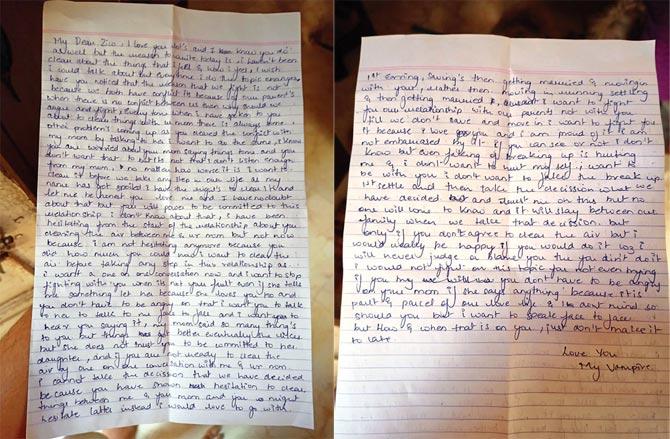 My Dear Zico, I love you lot's and I know you do
as well but the reason to write today is i haven't been
clear about the things that i feel & how i feel, I wish
i could talk about but everytime i do the topic changes.
have you noticed that the reason that we fight is not
because we both have conflict its because of our parent's
when there is no conflict between us then why should we
argue and fight, every time when i have spoken to you
about to clear things with ur mom there is always some
other problem's coming up, as you cleared the conflict with
my mom by talking to her i want to do the same, i know
you are worried about your mom saying things to me and you
don't want that to but its not that i don't listen enough
from my mom, no matter how worse it is I want to
clear it before we take any step in our life as my
name has got spoiled I have the right's to clear it and
let me be human you love me and I have no doubt
about that but you still to be committed to this
relationship i don't know about that, i have been
hesitating from the start of the relationship about you
clearing the air between me & ur mom but not now
because i am not hesitating anymore because you
do how much you could now i want to clear the
air before taking any step in this relationship as
i want a one on one conversation now and i want to stop
fighting with you when its not you fault even if she tells
me something let her because for love you no and
you don't have to be angry on that i want you to talk
to her to talk to me face to face and I want you to
hear you saying it, my mom said so many thing's
to you but things got better eventually the
but she does not trust you to be committed to her
daughter, and if you are not ready to clear the
air by one on one conversation with me & ur mom
i cannot take the decision that we have decided
because you have shown hesitation to clear
things between me & your mom and you might
hesitate latter instead i would love to go with
1st earning, saving's then getting married & moving in
with you, rather then moving in running settling
& then getting married, I want to fight
for our relationship with our parents not with you
till we don't save and move in i want to fight for
it because i love you and i am proud of it i am
not embarrased by it if you can see or not I don't
know but even talking of breaking up is hurting
me & i don't want to hurt my self, i want to
be with you i don't want to take the break up
1st settle and then take the decission what we
have decided and trust me on this but no
one will come to know and it will stay between our
family when we take that decission but
only if you don't agree to clear the air but i
would really be happy if you would do it coz i
will never judge or blame you tht you didn't do it
i would not on this topic you not even trying
if you my you don't have to be angry
on your mom if she says anything because it is
part & parcel of our love life & i don't mind so
should you but i want to speak face to face
but How & when that is on you, just don't make it
to late.
Love You
My Vampire.